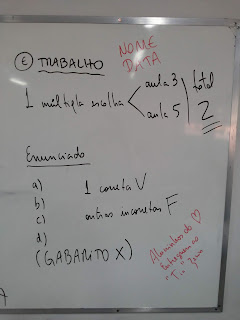 E TRABALHO
NOME
DATA
1 múltipla escolha
aula 3
aula 5
total
2
Enunciado
a) 1 correta V
b)
c) outras incorretas F
d)
(GABARITO X)
Alouinhos do
entreguem ao
"T
A